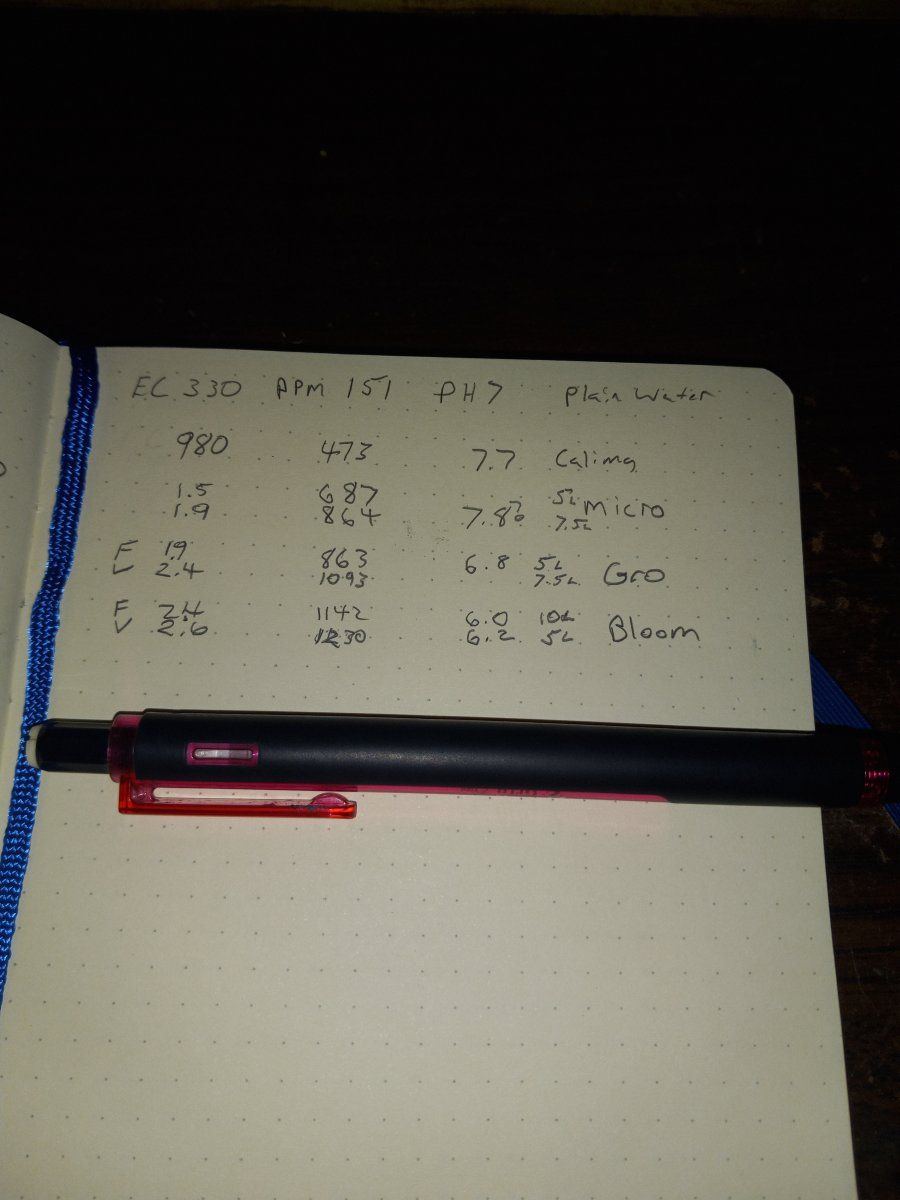 EC 330 PPM 151 PH 7 Plain Water
980 473 7.7 Calimg
1.5 687 5L
1.9 864 7.8 7.5L Micro
F 1.9 863 6.8 5L
V 2.4 1093 7.5L Gro
F 2.4 1142 6.0 10L
V 2.6 1230 6.2 5L Bloom